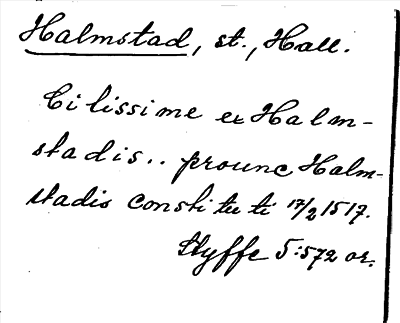 Halmstad, st., Hall.
Cilissime ex Halm-
stadis.. prounc Halm-
stadis constituti 17/2 1517.
Styffe 5:572 or.